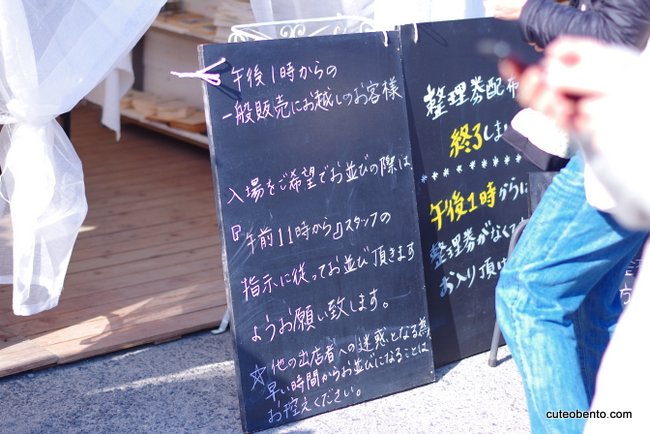 午後1時からの
一般販売にお越しのお客様
入場をご希望でお並びの際は
『午前11時から』スタッフの
指示に従ってお並び頂きます
ようお願い致します。
☆他の出店者への迷惑となる為
早い時間からお並びになることは
お控えください。
整理券配布
終了しま
午後1時からは
整理券がなくて
お入り頂け
cuteobento.com